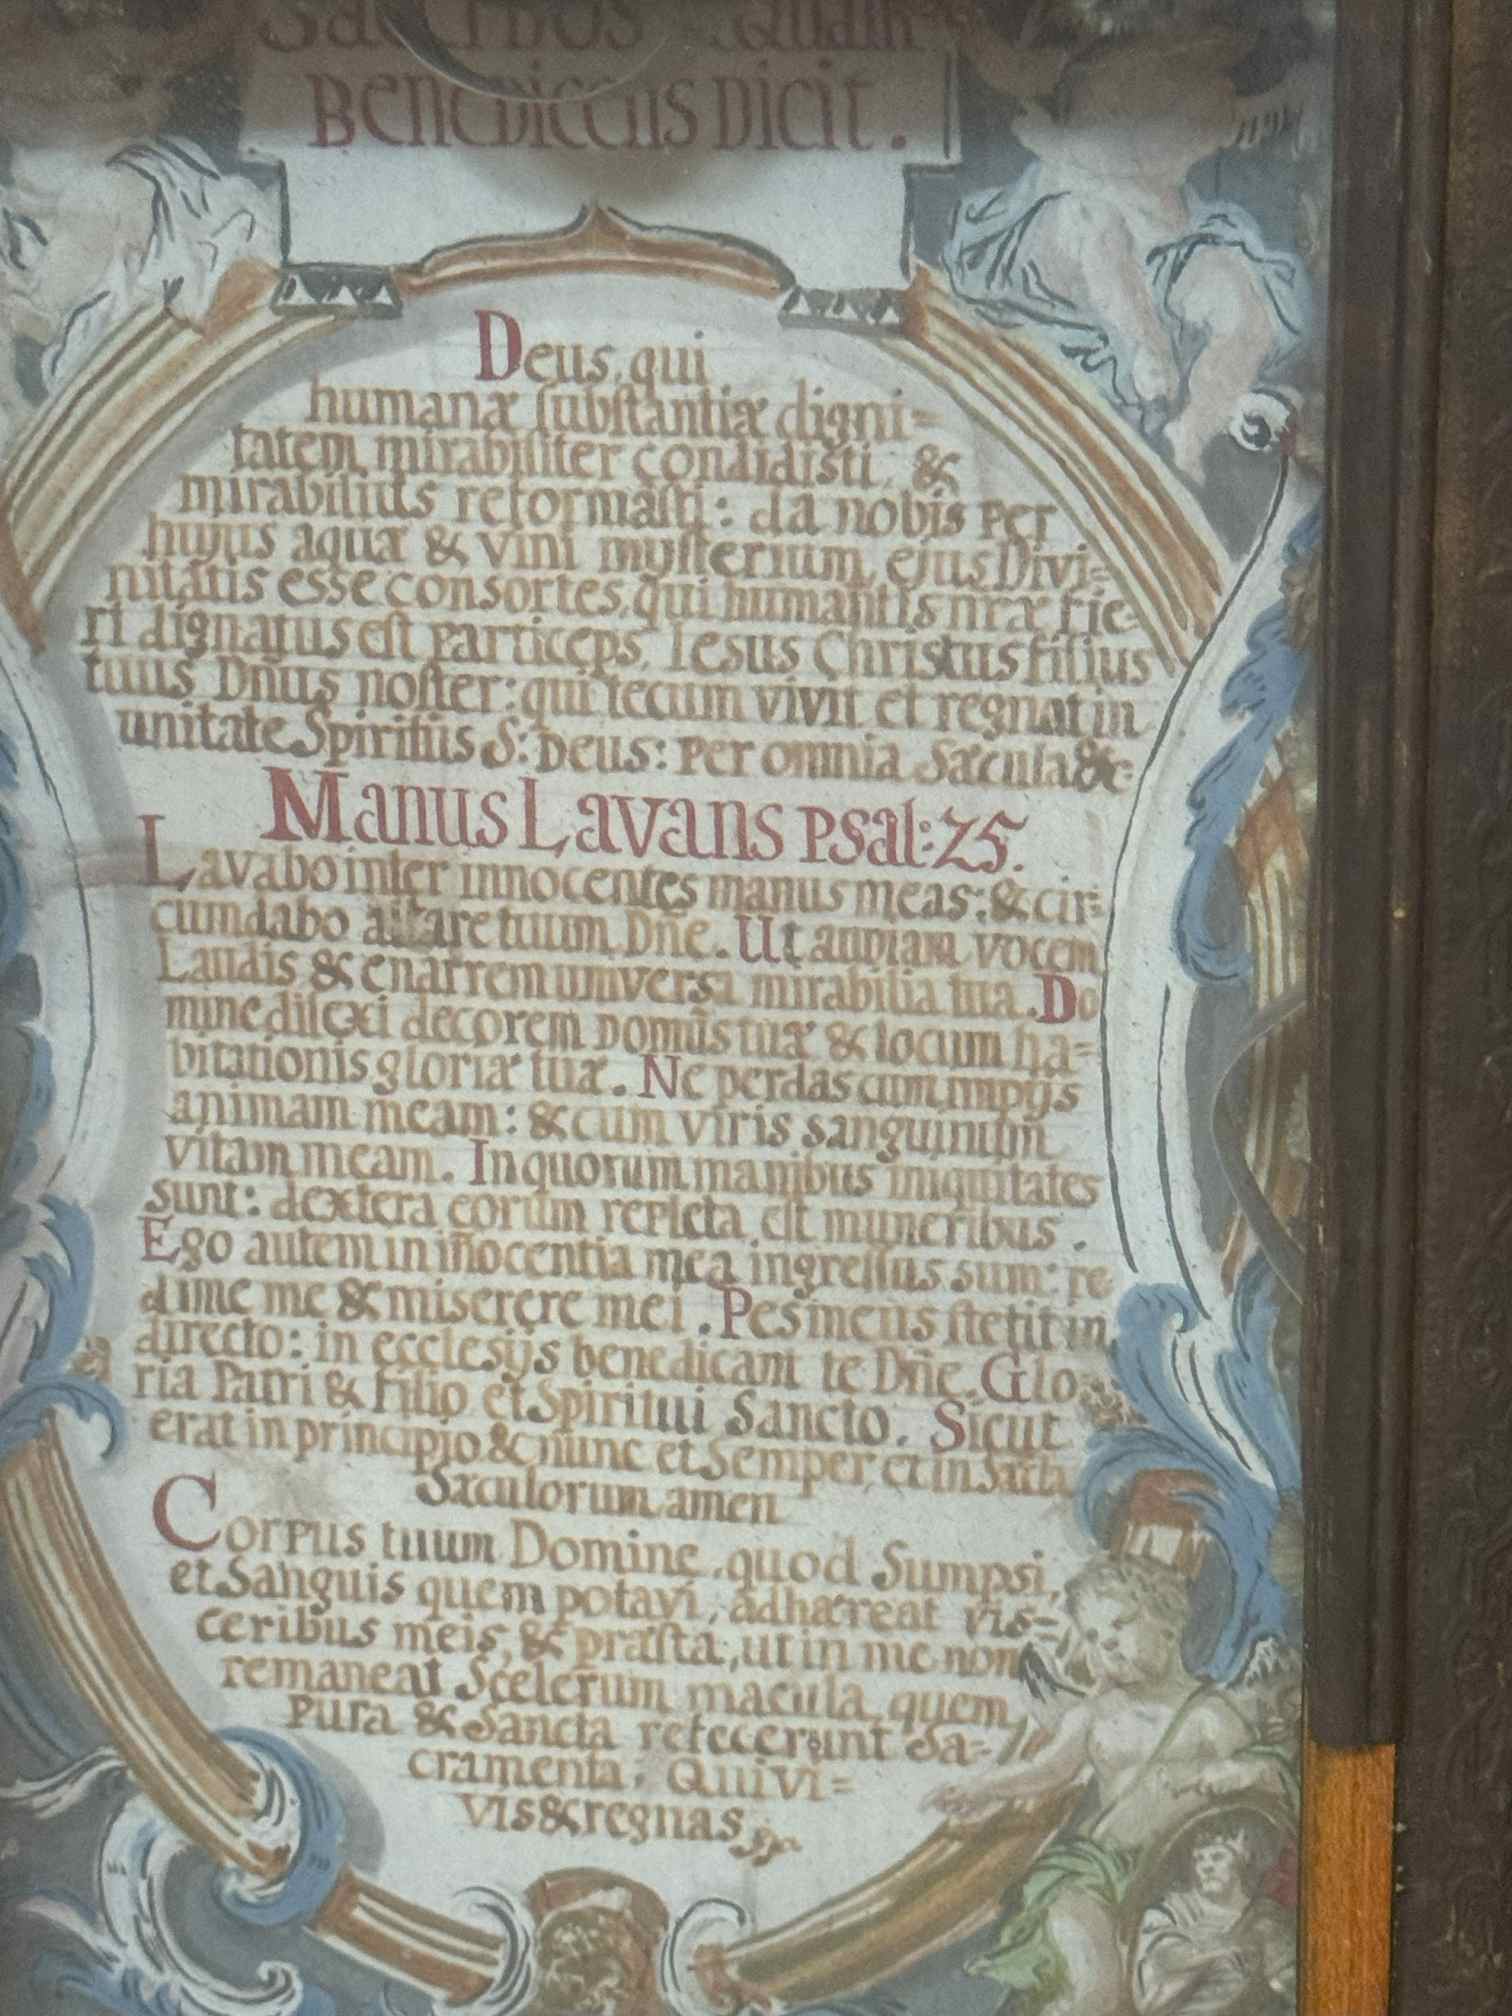 Sacerdos Quam
Benedicens Dicit.
Deus, qui
humanæ substantiæ digni=
tatem mirabiliter condidisti, &
mirabilius reformasti: da nobis per
hujus aquæ & vini mysterium, ejus Divi=
nitatis esse consortes, qui humanitis nræ fie=
ri dignatus est particeps, Iesus Christus filius
tuus Dñus noster: qui tecum vivit et regnat in
unitate Spiritûs S: Deus: per omnia Sæcula &c.
Manus Lavans Psal: 25.
Lavabo inter innocentes manus meas: & cir=
cumdabo altare tuum Dñe. Ut audiam vocem
Laudis & enarrem universa mirabilia tua. Do
mine dilexi decorem domûs tuæ & locum ha=
bitationis gloriæ tuæ. Ne perdas cum impijs
animam meam: & cum viris sanguinum
vitam meam. In quorum manibus iniquitates
sunt: dextera eorum repleta est muneribus.
Ego autem in iñocentia mea ingressus sum: re
dime me & miserere mei. Pes meus stetit in
directo: in ecclesijs benedicam te Dñe. Glo=
ria Patri & Filio et Spiritui Sancto. Sicut
erat in principio & nunc et Semper, et in Sæcla
Sæculorum amen
Corpus tuum Domine, quod Sumpsi,
et Sanguis quem potavi, adhæreat vis=
ceribus meis, & præsta, ut in me non
remaneat Scelerum macula, quem
pura & Sancta refecerunt Sa=
cramenta, Qui vi=
vis & regnas